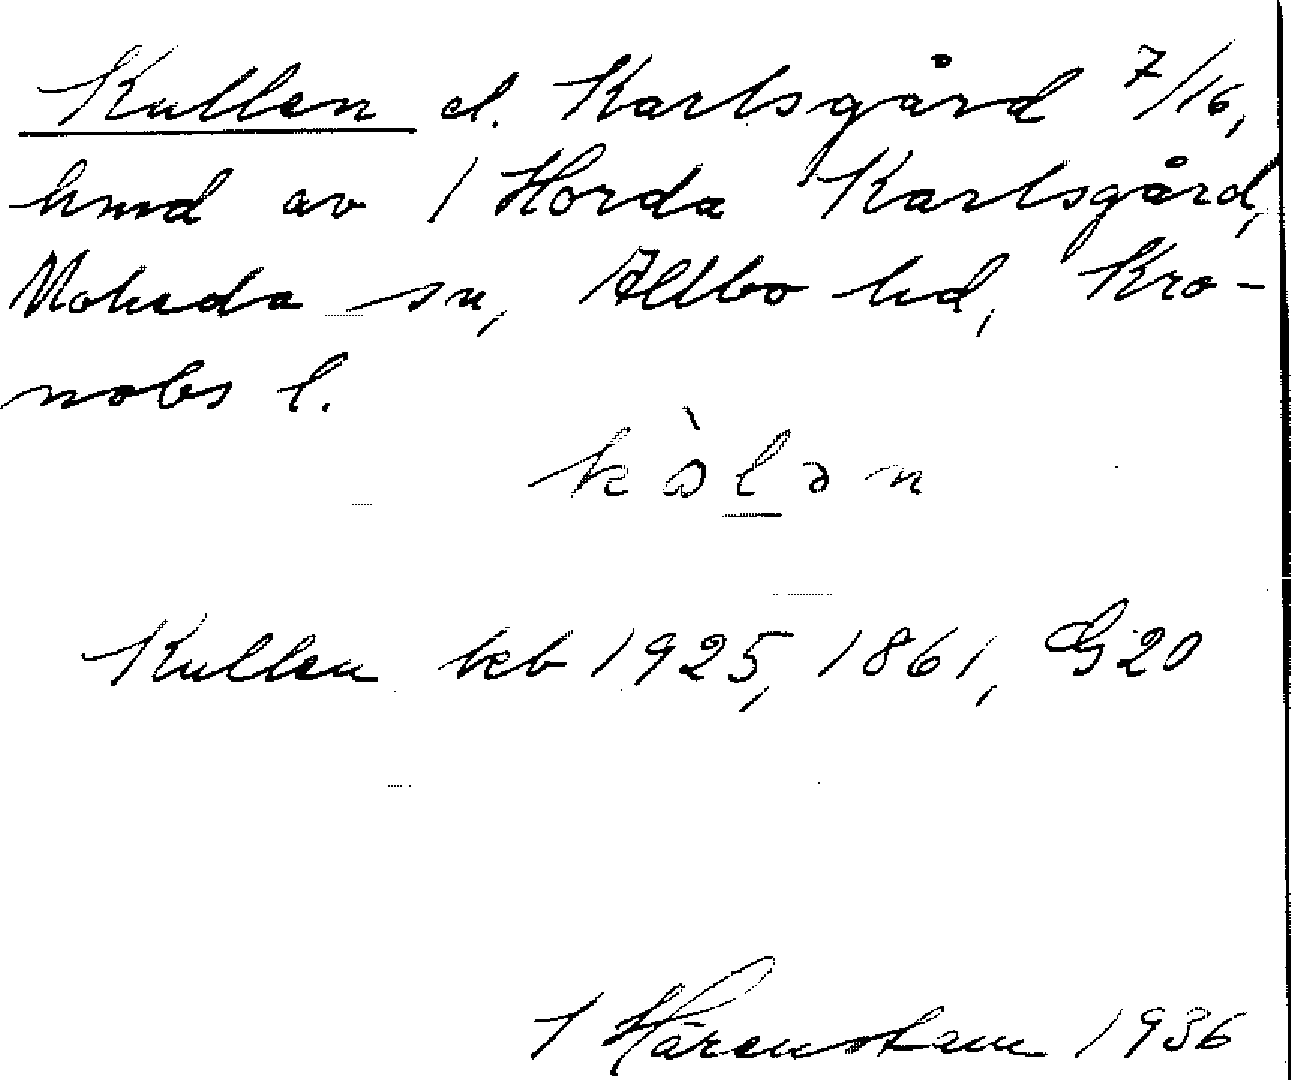 Kullen el. Karlsgård 7/16,
hmd av 1 Horda Karlsgård,
Moheda sn, Allbo hd, Kro-
nobs l.
kòlən
Kullen keb 1925, 1861, G20
I Härenstam 1936